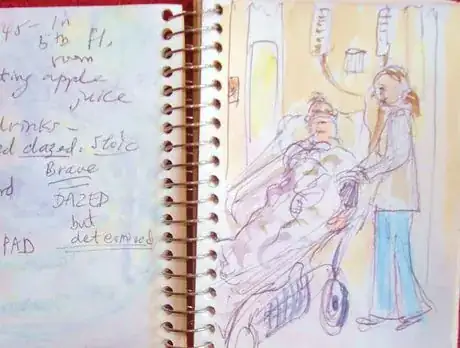 45 - In
6th fl,
room
ting apple
juice
drinks -
ed dazed. Stoic
Brave
rd
DAZED
but
PAD determined